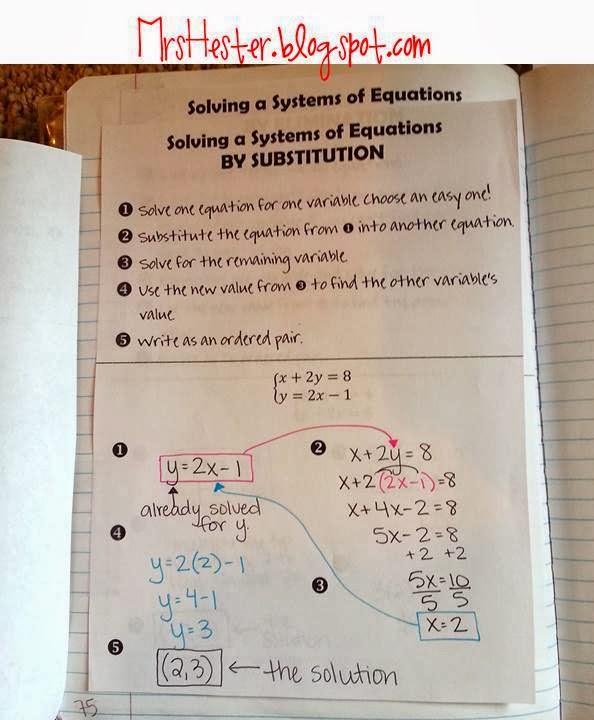 MrsHester.blogspot.com
Solving a Systems of Equations
Solving a Systems of Equations
BY SUBSTITUTION
❶ Solve one equation for one variable. Choose an easy one!
❷ Substitute the equation from ❶ into another equation.
❸ Solve for the remaining variable.
❹ Use the new value from ❸ to find the other variable's
value.
❺ Write as an ordered pair.
{x + 2y = 8
{y = 2x − 1
❶
y=2x-1
already solved
for y.
❷
x+2y=8
x+2(2x-1)=8
x+4x-2=8
5x-2=8
+2 +2
❸
5x=10
5 5
x=2
❹
y=2(2)-1
y=4-1
y=3
❺
(2,3) ← the solution
75